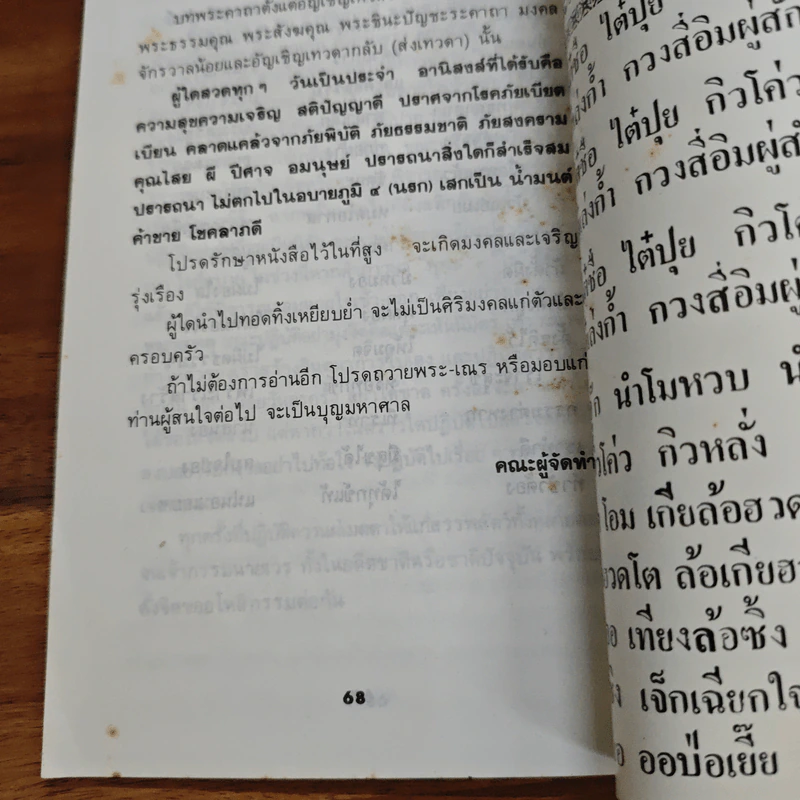 บทพระคาถาตั้งแต่อัญเชิญเทวดา
พระธรรมคุณ พระสังฆคุณ พระชินะปัญชะระคาถา มงคล
จักรวาลน้อยและอัญเชิญเทวดากลับ (ส่งเทวดา) นั้น
ผู้ใดสวดทุกๆ วันเป็นประจำ อานิสงส์ที่ได้รับคือ
ความสุขความเจริญ สติปัญญาดี ปราศจากโรคภัยเบียด
เบียน คลาดแคล้วจากภัยพิบัติ ภัยธรรมชาติ ภัยสงคราม
คุณไสย ผี ปีศาจ อมนุษย์ ปรารถนาสิ่งใดก็สำเร็จสม
ปรารถนา ไม่ตกไปในอบายภูมิ ๔ (นรก) เสกเป็น น้ำมนต์
ค้าขาย โชคลาภดี
โปรดรักษาหนังสือไว้ในที่สูง จะเกิดมงคลและเจริญ
รุ่งเรือง
ผู้ใดนำไปทอดทิ้งเหยียบย่ำ จะไม่เป็นศิริมงคลแก่ตัวและ
ครอบครัว
ถ้าไม่ต้องการอ่านอีก โปรดถวายพระ-เณร หรือมอบแก่
ท่านผู้สนใจต่อไป จะเป็นบุญมหาศาล
คณะผู้จัดทำ
68
ไต๋ปุย
กวงสี่อิมผู่สัก
ไต๋ปุย กิวโค่ว
กวงสี่อิมผู่สัก
ไต๋ปุย กิวโค
กวงสี่อิมผู่
นำโมหวบ
กิวหลั่ง
เกียล้อฮวด
ล้อเกียฮ
เทียงล้อซิ้ง
เจ็กเฉียกใจ
ออป่อเยี๊ย